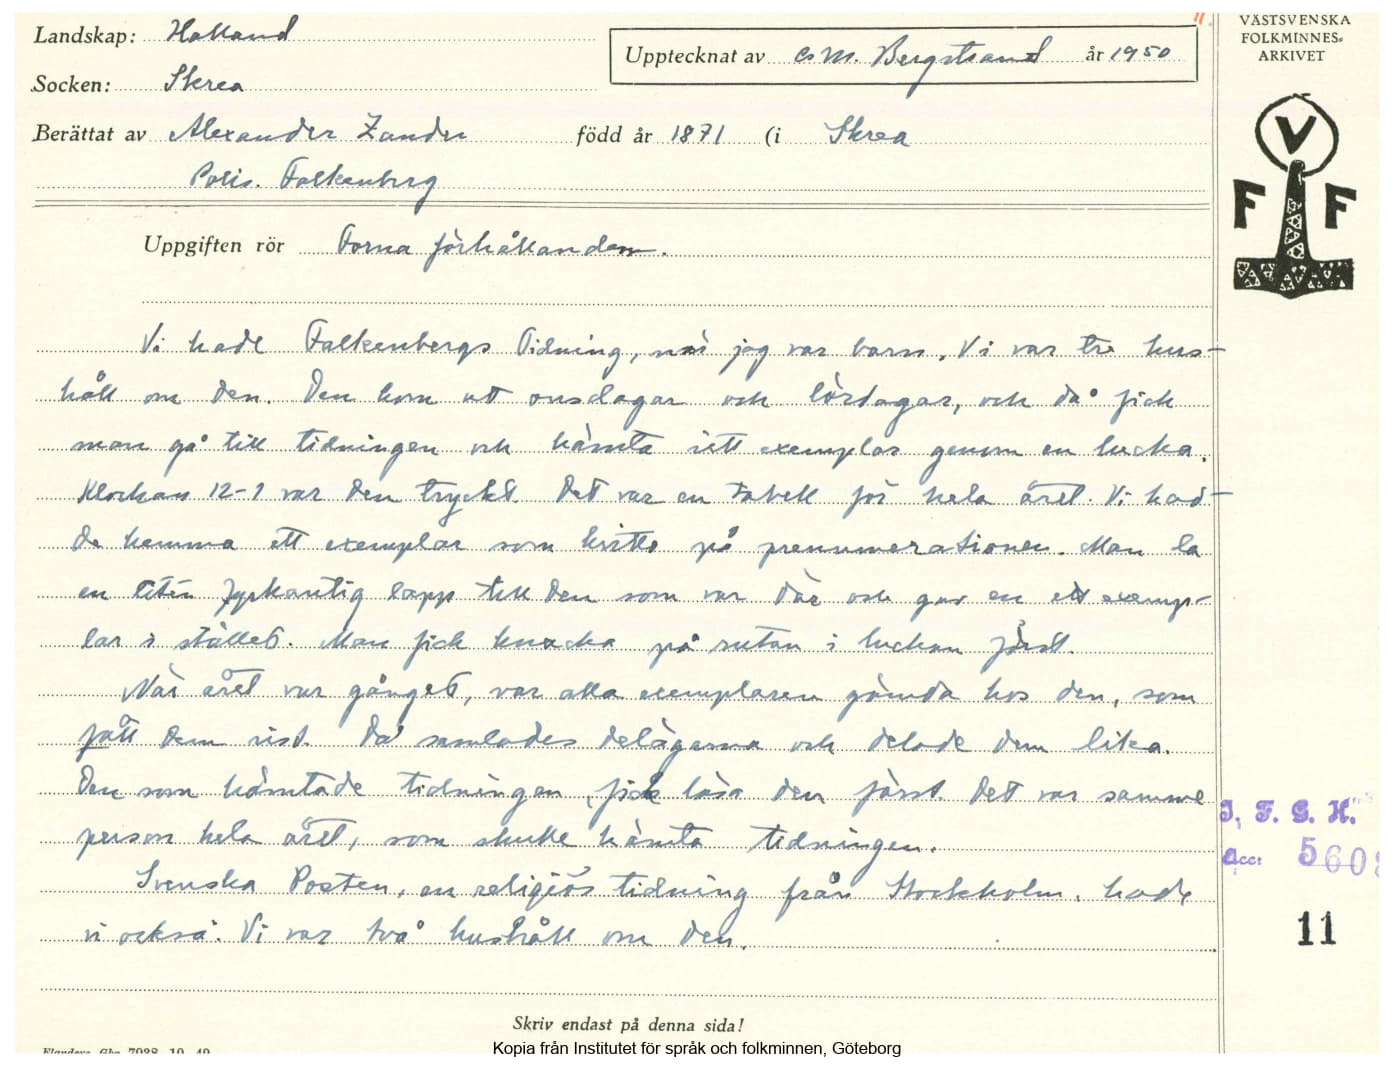 Landskap: Halland
Socken: Skrea
Upptecknat av C. M. Bergstrand år 1950
Berättat av Alexander Zander född år 1871 (i Skrea
Polis. Falkenberg
Uppgiften rör Forna förhållanden.
Vi hade Falkenbergs Tidning, när jag var barn. Vi var tre hus-
håll om den. Den kom ut onsdagar och lördagar, och då fick
man gå till tidningen och hämta sitt exemplar genom en lucka.
Klockan 12-1 var den tryckt. Det var en tabell för hela året. Vi had-
de hemma ett exemplar som kvitto på prenumerationen. Man la
en liten fyrkantig lapp till den som var där och gav en ett exemp-
lar i stället. Man fick knacka på rutan i luckan först.
När året var gånget, var alla exemplaren gömda hos den, som
fått dem sist. Då samlades delägarna och delade dem lika.
Den som hämtade tidningen, fick läsa den först. Det var samme
person hela året, som skulle hämta tidningen.
Svenska Posten, en religiös tidning från Stockholm, hade
vi också. Vi var två hushåll om den.
Skriv endast på denna sida!
Kopia från Institutet för språk och folkminnen, Göteborg
VÄSTSVENSKA
FOLKMINNES-
ARKIVET
V
F F
I. F. G. H.
Acc: 5608
11